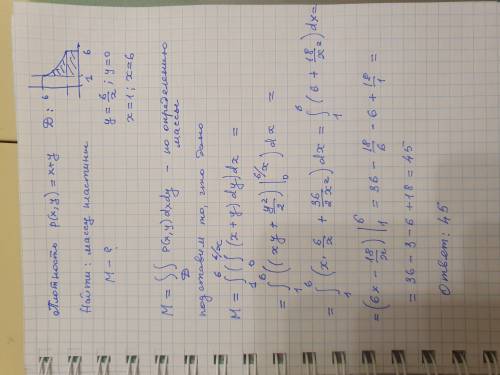 Плотность ρ(x;y) = x+y
D:
6
6
1
Найти: массу пластины
y = 6/x ; y=0
M - ?
x=1; x=6
M = ∫∫ ρ(x,y)dxdy - по определению массы
D
подставим то, что дано
M = ∫₁⁶ (∫₀^{6/x} (x+y)dy)dx =
= ∫₁⁶ ((xy + y²/2)|₀^{6/x}) dx =
= ∫₁⁶ (x·6/x + 36/2x²)dx = ∫₁⁶ (6 + 18/x²)dx =
= (6x - 18/x)|₁⁶ = 36 - 18/6 - 6 + 18/1 =
= 36 - 3 - 6 + 18 = 45
Ответ: 45